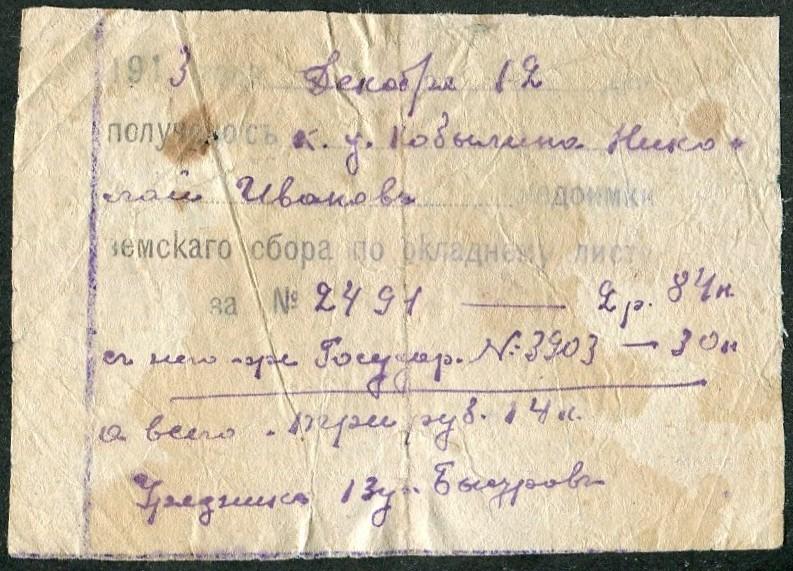 1913 Декабря 12
получено съ к. у. Кобылина Нико-
лай Ивановъ недоимки
земскаго сбора по окладному листу
за № 2491 — 2 р. 84 к.
съ него же Государ. № 3903 — 30 к
а всего три руб. 14 к.
Урядникъ 13 у.